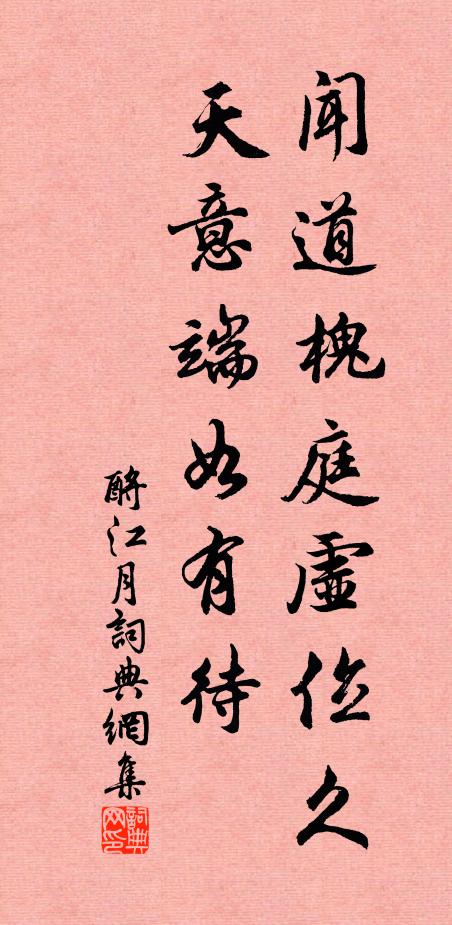 闻道槐庭虛位久
天意端如有待
酹江月詞典網集
詞典网印